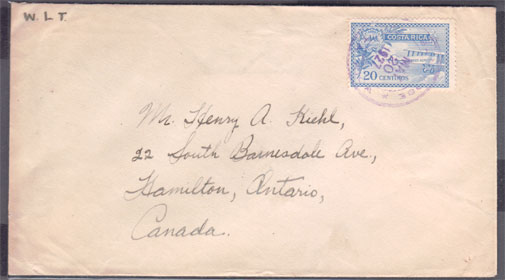 W.L.T.
COSTA RICA
20 CENTIMOS
Mr. Henry A. Kiehl,
22 South Barnesdale Ave.,
Hamilton, Ontario,
Canada.